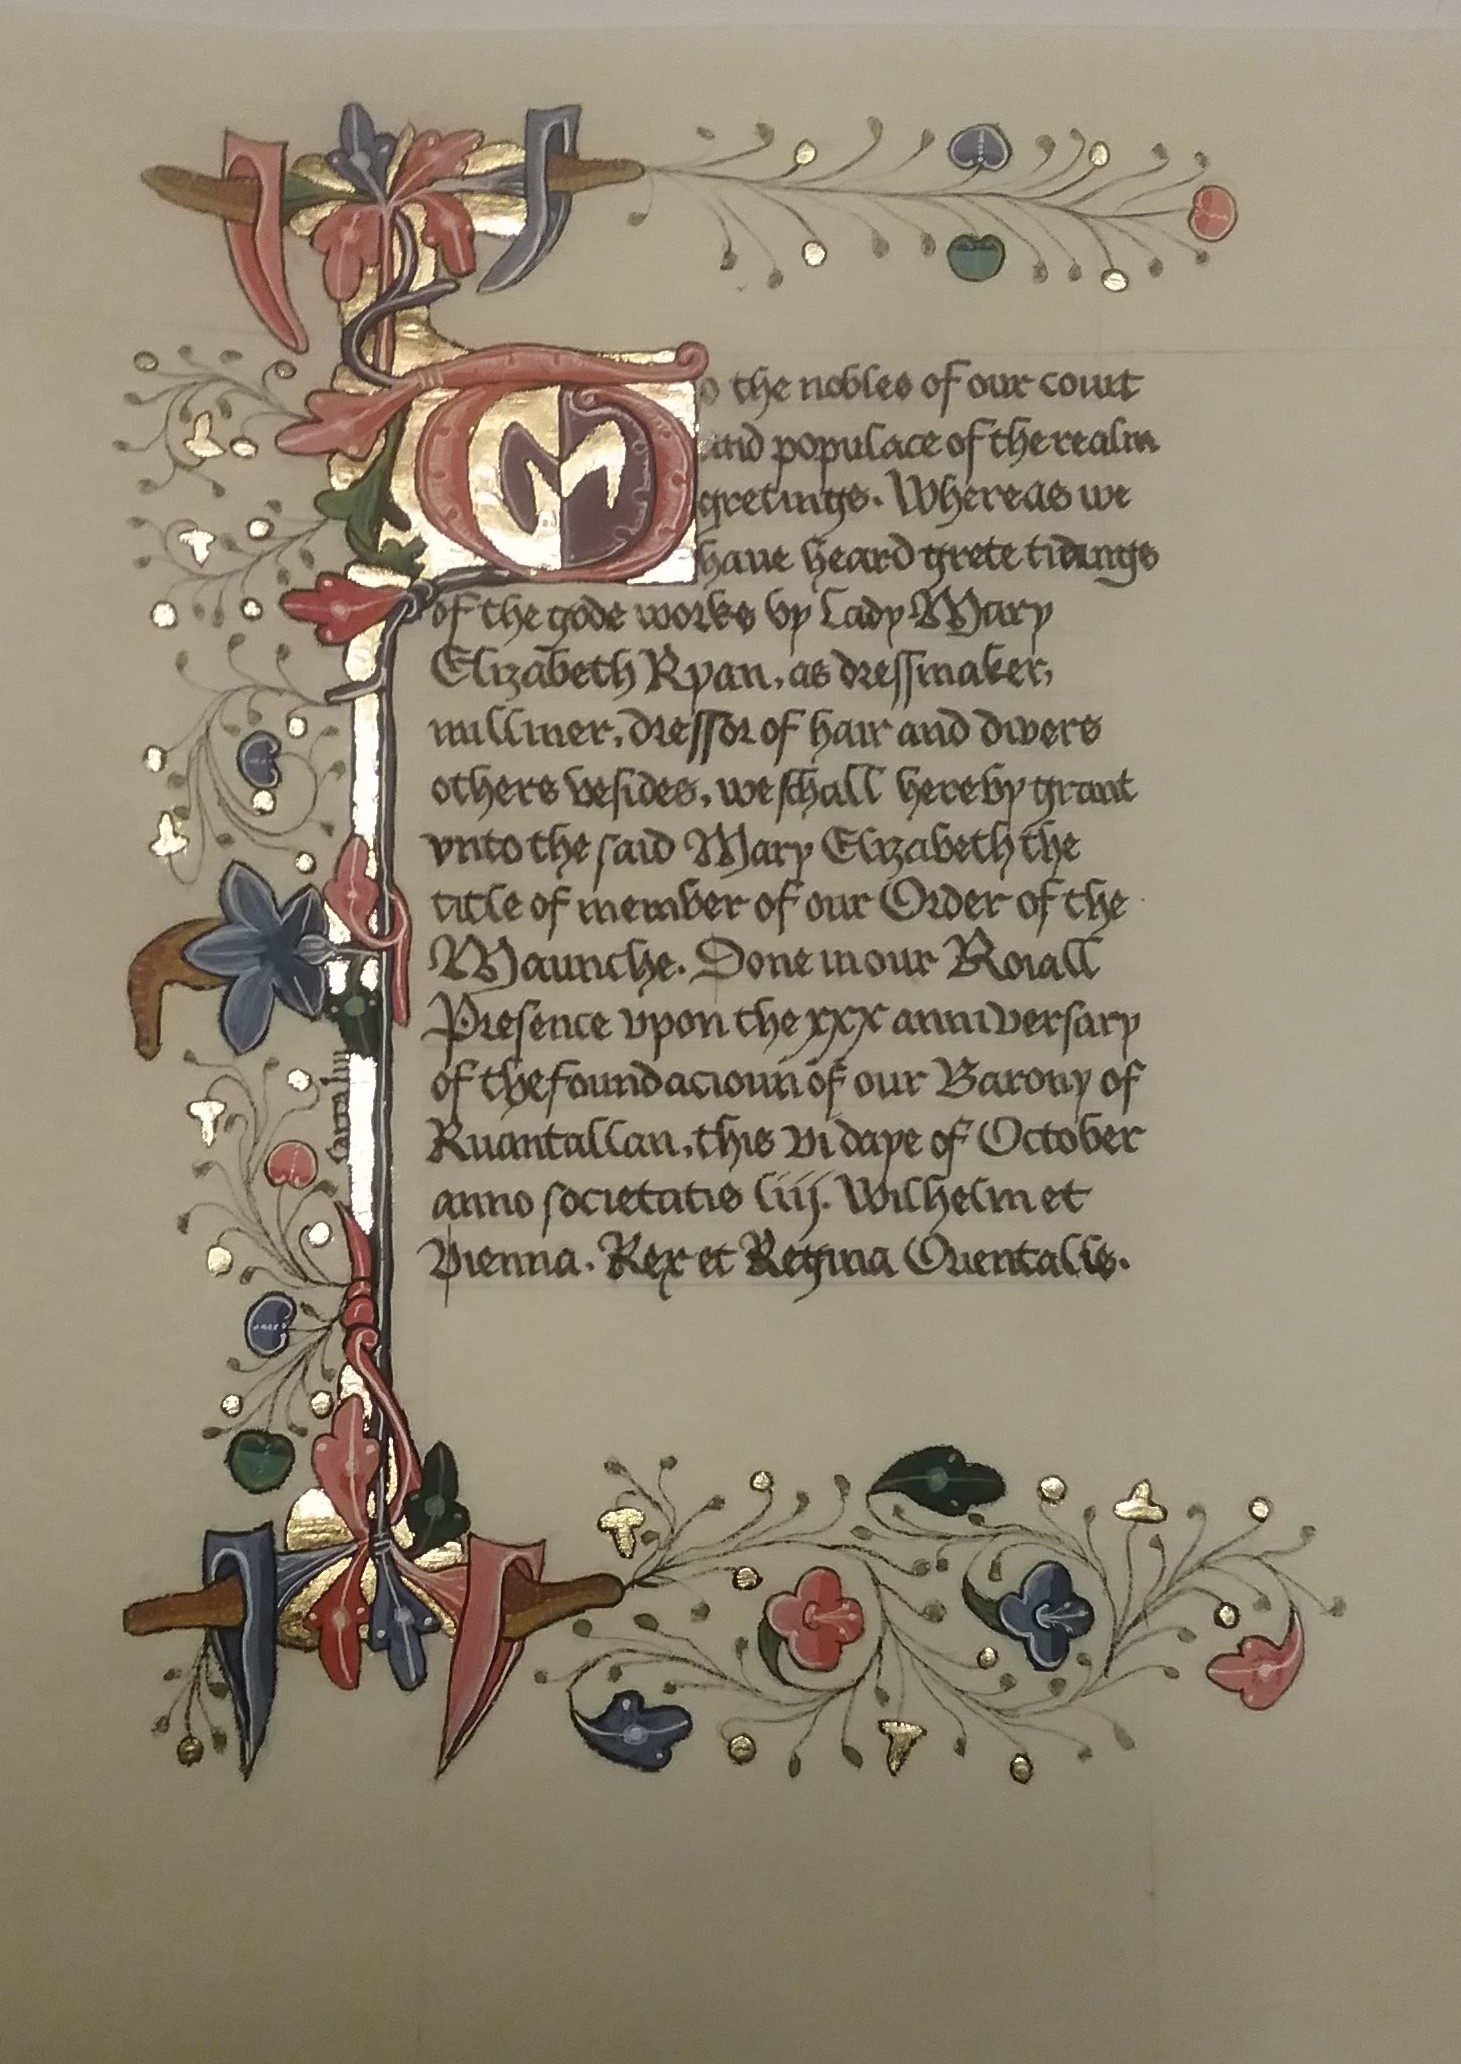 To the nobles of our court
and populace of the realm
gretings. Whereas we
have heard grete tidings
of the gode works by Lady Mary
Elizabeth Ryan, as dressmaker,
milliner, dressor of hair and divers
others besides, we schall hereby grant
vnto the said Mary Elizabeth the
title of member of our Order of the
Maunche. Done in our Roiall
Presence vpon the xxx anniversary
of the foundacioun of our Barony of
Ruantallan, this vi daye of October
anno societatis liij. Wilhelm et
Vienna. Rex et Regina Orientalis.